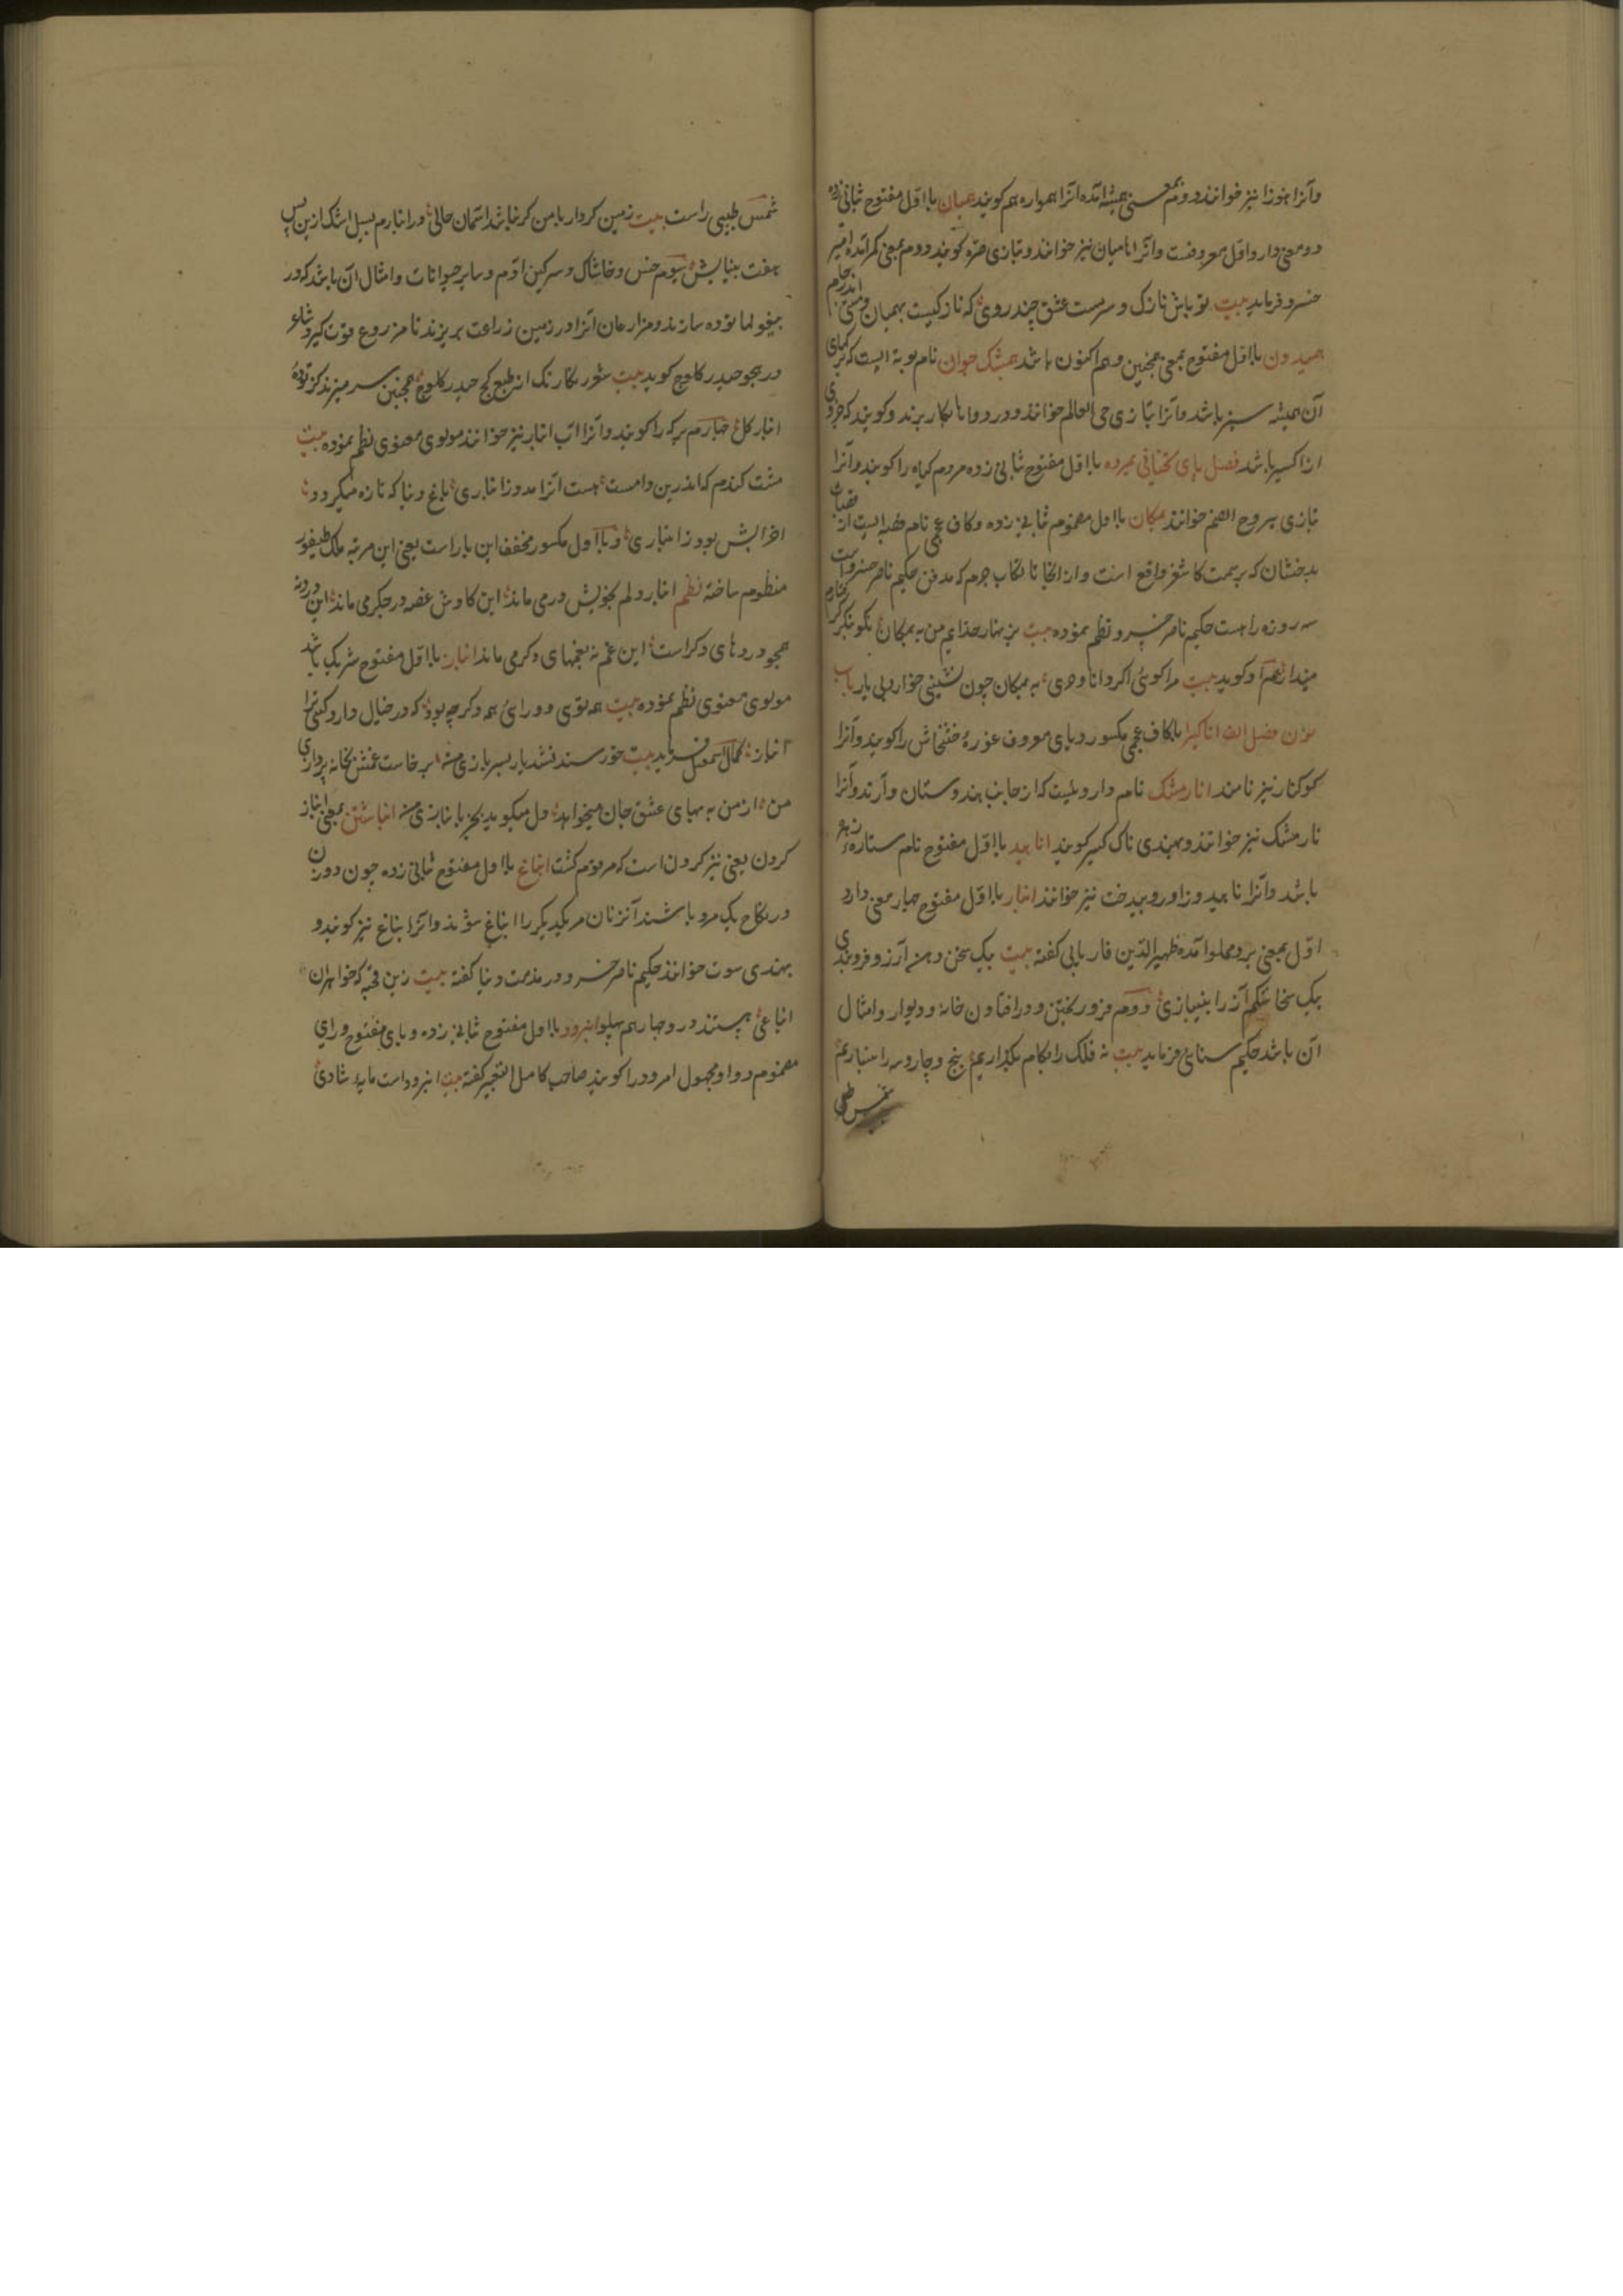 وآنرا هنوز نیز خوانند و دوم بمعنی همیشه آمده آنرا همواره هم کویند همیان با اوّل مفتوح ثانی زده
دو معنی دارد اول معروفست وآنرا انامیان نیز خوانند و بتازی صره کویند و دوم بمعنی کمر آمده امیر
خسرو فرماید بیت تو باش نازک و سرمست عشق چند روی که ناز کیست بهمیان
همیدون با اوّل مفتوح بمعنی همچنین و هم اکنون باشد همیشک جوان نام بوته ایست که برکهای
آن همیشه سبز باشد وآنرا بتازی حی العالم خوانند و در دواها بکار برند و کویند که جزوی
از اکسیر باشد فصل یای تحتانی یبروه با اوّل مفتوح ثانی زده مردم کیاه را کویند وآنرا
بتازی یبروح الصنم خوانند یمکان با اول مضموم ثانی زده وکاف عجمی نام قصبه ایست از قصبات
بدخشان که بر سمت کاشغر واقع است و از آنجا تا بکتاب جرم که مدفن حکیم ناصر خسرو است
سه روزه راهست حکیم ناصر خسرو نظم نموده بیت بزینهار خدایم من به یمکان نکو بنکر کرفتارم
مپندار هم او کوید بیت مرا کوئی اکر دانا و حری به یمکان چون نشینی خوار و بی یار باب
نون فصل الف اناکیرا باکاف عجمی مکسور و یای معروف غوزهٔ خشخاش را کویند وآنرا
کوکنار نیز نامند انارمشک نام داروئیست که از جانب هندوستان وآرند وآنرا
نارمشک نیز خوانند و بهندی ناک کیسر کویند اناهید با اوّل مفتوح نام ستارهٔ زهره
باشد وآنرا ناهید و زاور و بیدخت نیز خوانند انبار با اوّل مفتوح چهار معنی دارد
اوّل بمعنی پر و مملو آمده ظهیر الدین فاریابی کفته بیت بیک سخن دهن آرزو فروبندی
بیک سخا شکم آز را بینبازی دوم فرو ریختن و در افتادن خانه و دیوار و امثال
آن باشد حکیم سنائی فرماید بیت نه فلک را بکام بکذاریم پنج و چار و سه را بینباریم
شمس طبسی
شمس طبسی راست بیت زمین کردار با من کر نباشد آسمان حالی در انبارم بسیل اشک ازین پس
هفت بنیانش سیوم خس و خاشاک و سرکین آدم و سایر حیوانات و امثال آن باشد که در
بیغولها توده سازند و مزارعان آنرا در زمین زراعت بریزند تا مزروع قوت کیرد شاعر
در هجو حیدر کلوج کوید بیت شعر نکارنک از طبع کج حیدر کلوج همچنین سر میزند کز تودهٔ
انبار کل چهارم برکه را کویند وآنرا آب انبار نیز خوانند مولوی معنوی نظم نموده بیت
مشت کندم که اندرین دامست هست آنرا مدد ز انباری باغ دنیا که تازه میکردد
افزایش بود ز انباری و با اول مکسور مخفف این بار است یعنی این مرتبه ملک طیفور
منظوم ساخته نظم انبار دلم بخویش در می ماند این کاوش غصه در جکر می ماند این درد نه
همچو دردهای دکراست این غم نه بغمهای دکر می ماند انباز با اوّل مفتوح شریک باشد
مولوی معنوی نظم نموده بیت هم توی و ورای هم دکر چه بود که در خیال دارد کسی ترا
انباز کمال اسمعیل فرماید بیت خورسند نشد یار بسربازی من برخاست غمش بخانه پردازی
من از من به بهای عشق جان میخواهد دل میکوید بخر بانبازی من انباشتن بمعنی انباز
کردن یعنی نیز کردن است که مرقوم کشت انباغ با اول مفتوح ثانی زده چون دو زن
در نکاح یک مرد باشند آنزنان مر یکدیکر را انباغ شوند وآنرا بناغ نیز کویند و
بهندی سوت خوانند حکیم ناصر خسرو در مذمت دنیا کفته بیت زین قحبه که خواهران
انباغی هستند در و چهار هم پهلو انبرود با اول مفتوح ثانی زده و بای مفتوح و رای
مضموم و واو مجهول امرود را کویند صاحب کامل التعبیر کفته بیت انبرود است مایهٔ شادی